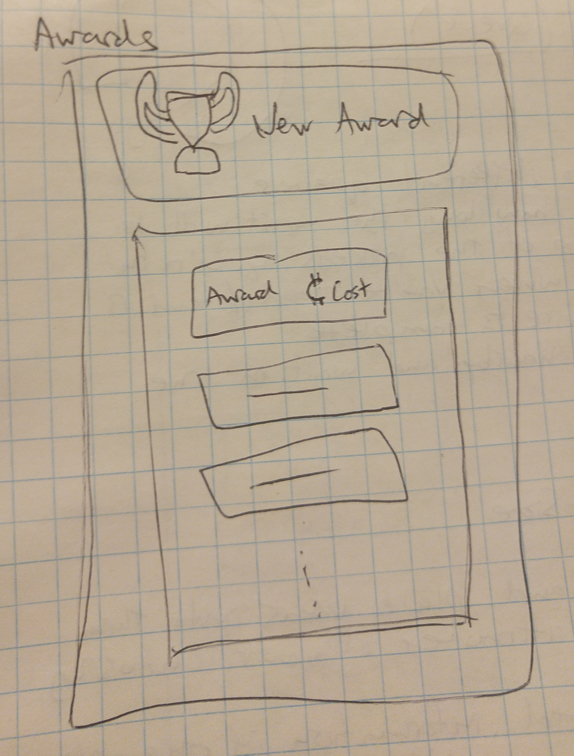 Awards
New Award
Award ₵ Cost